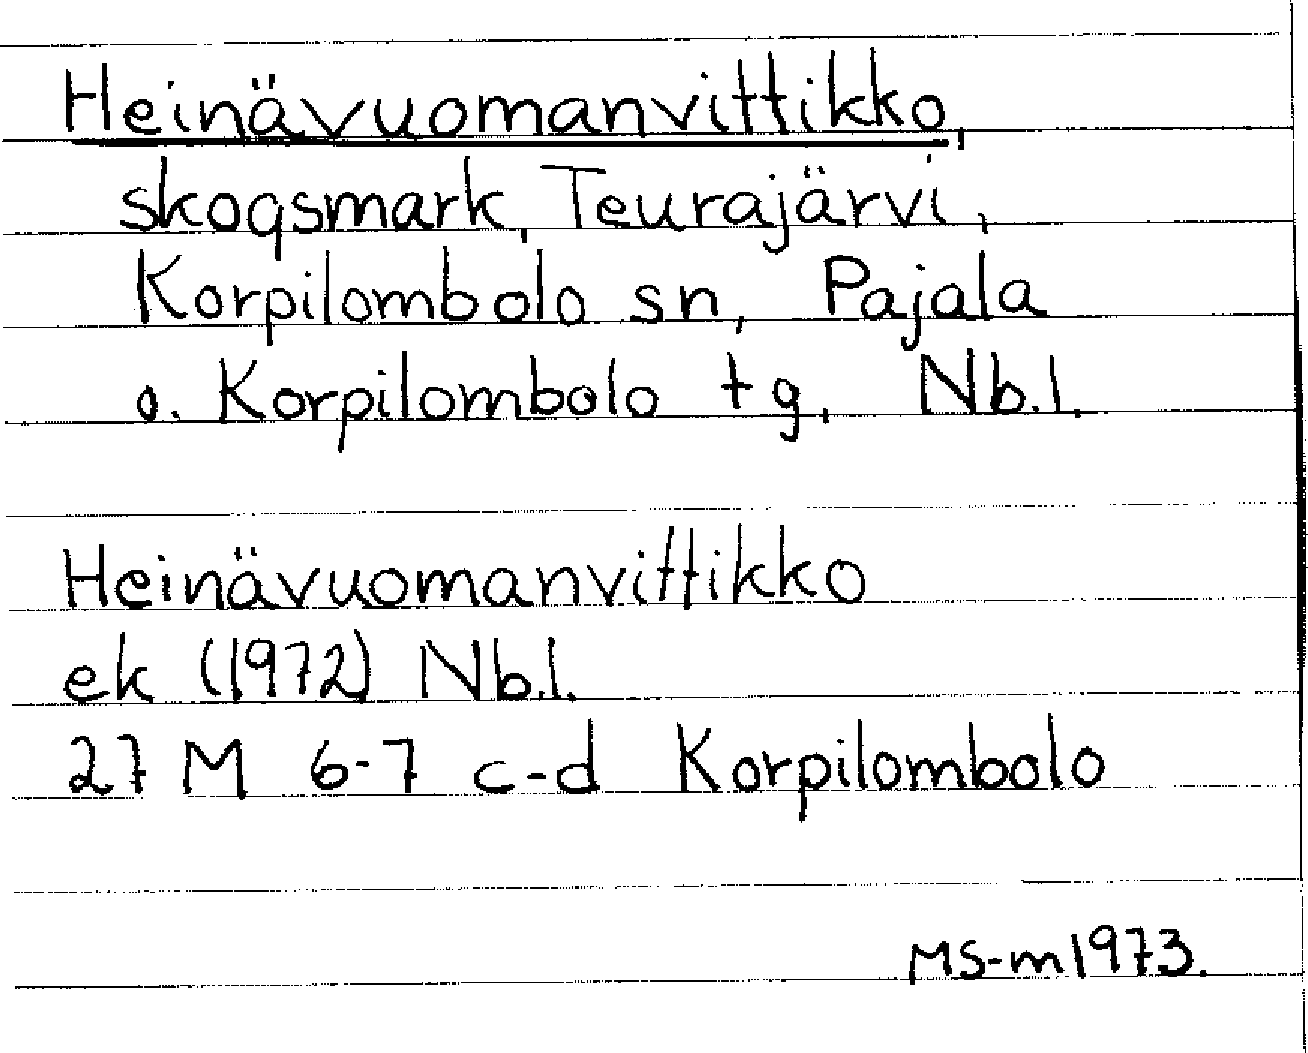 Heinävuomanvittikko,
skogsmark, Teurajärvi,
Korpilombolo sn, Pajala
o. Korpilombolo tg, Nb.l.
Heinävuomanvittikko
ek (1972) Nb.l.
27 M 6-7 c-d Korpilombolo
MS-m1973.